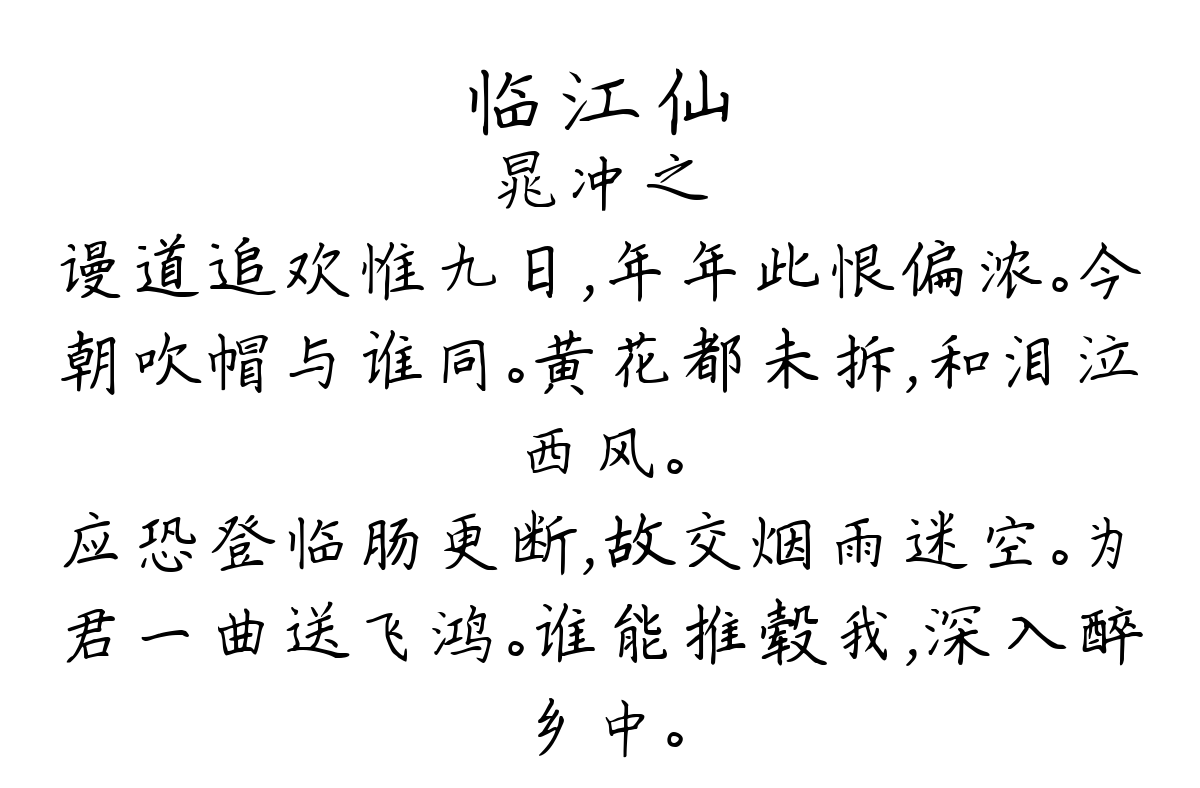 临江仙
晁冲之
谩道追欢惟九日,年年此恨偏浓。今
朝吹帽与谁同。黄花都未拆,和泪泣
西风。
应恐登临肠更断,故交烟雨迷空。为
君一曲送飞鸿。谁能推毂我,深入醉
乡中。